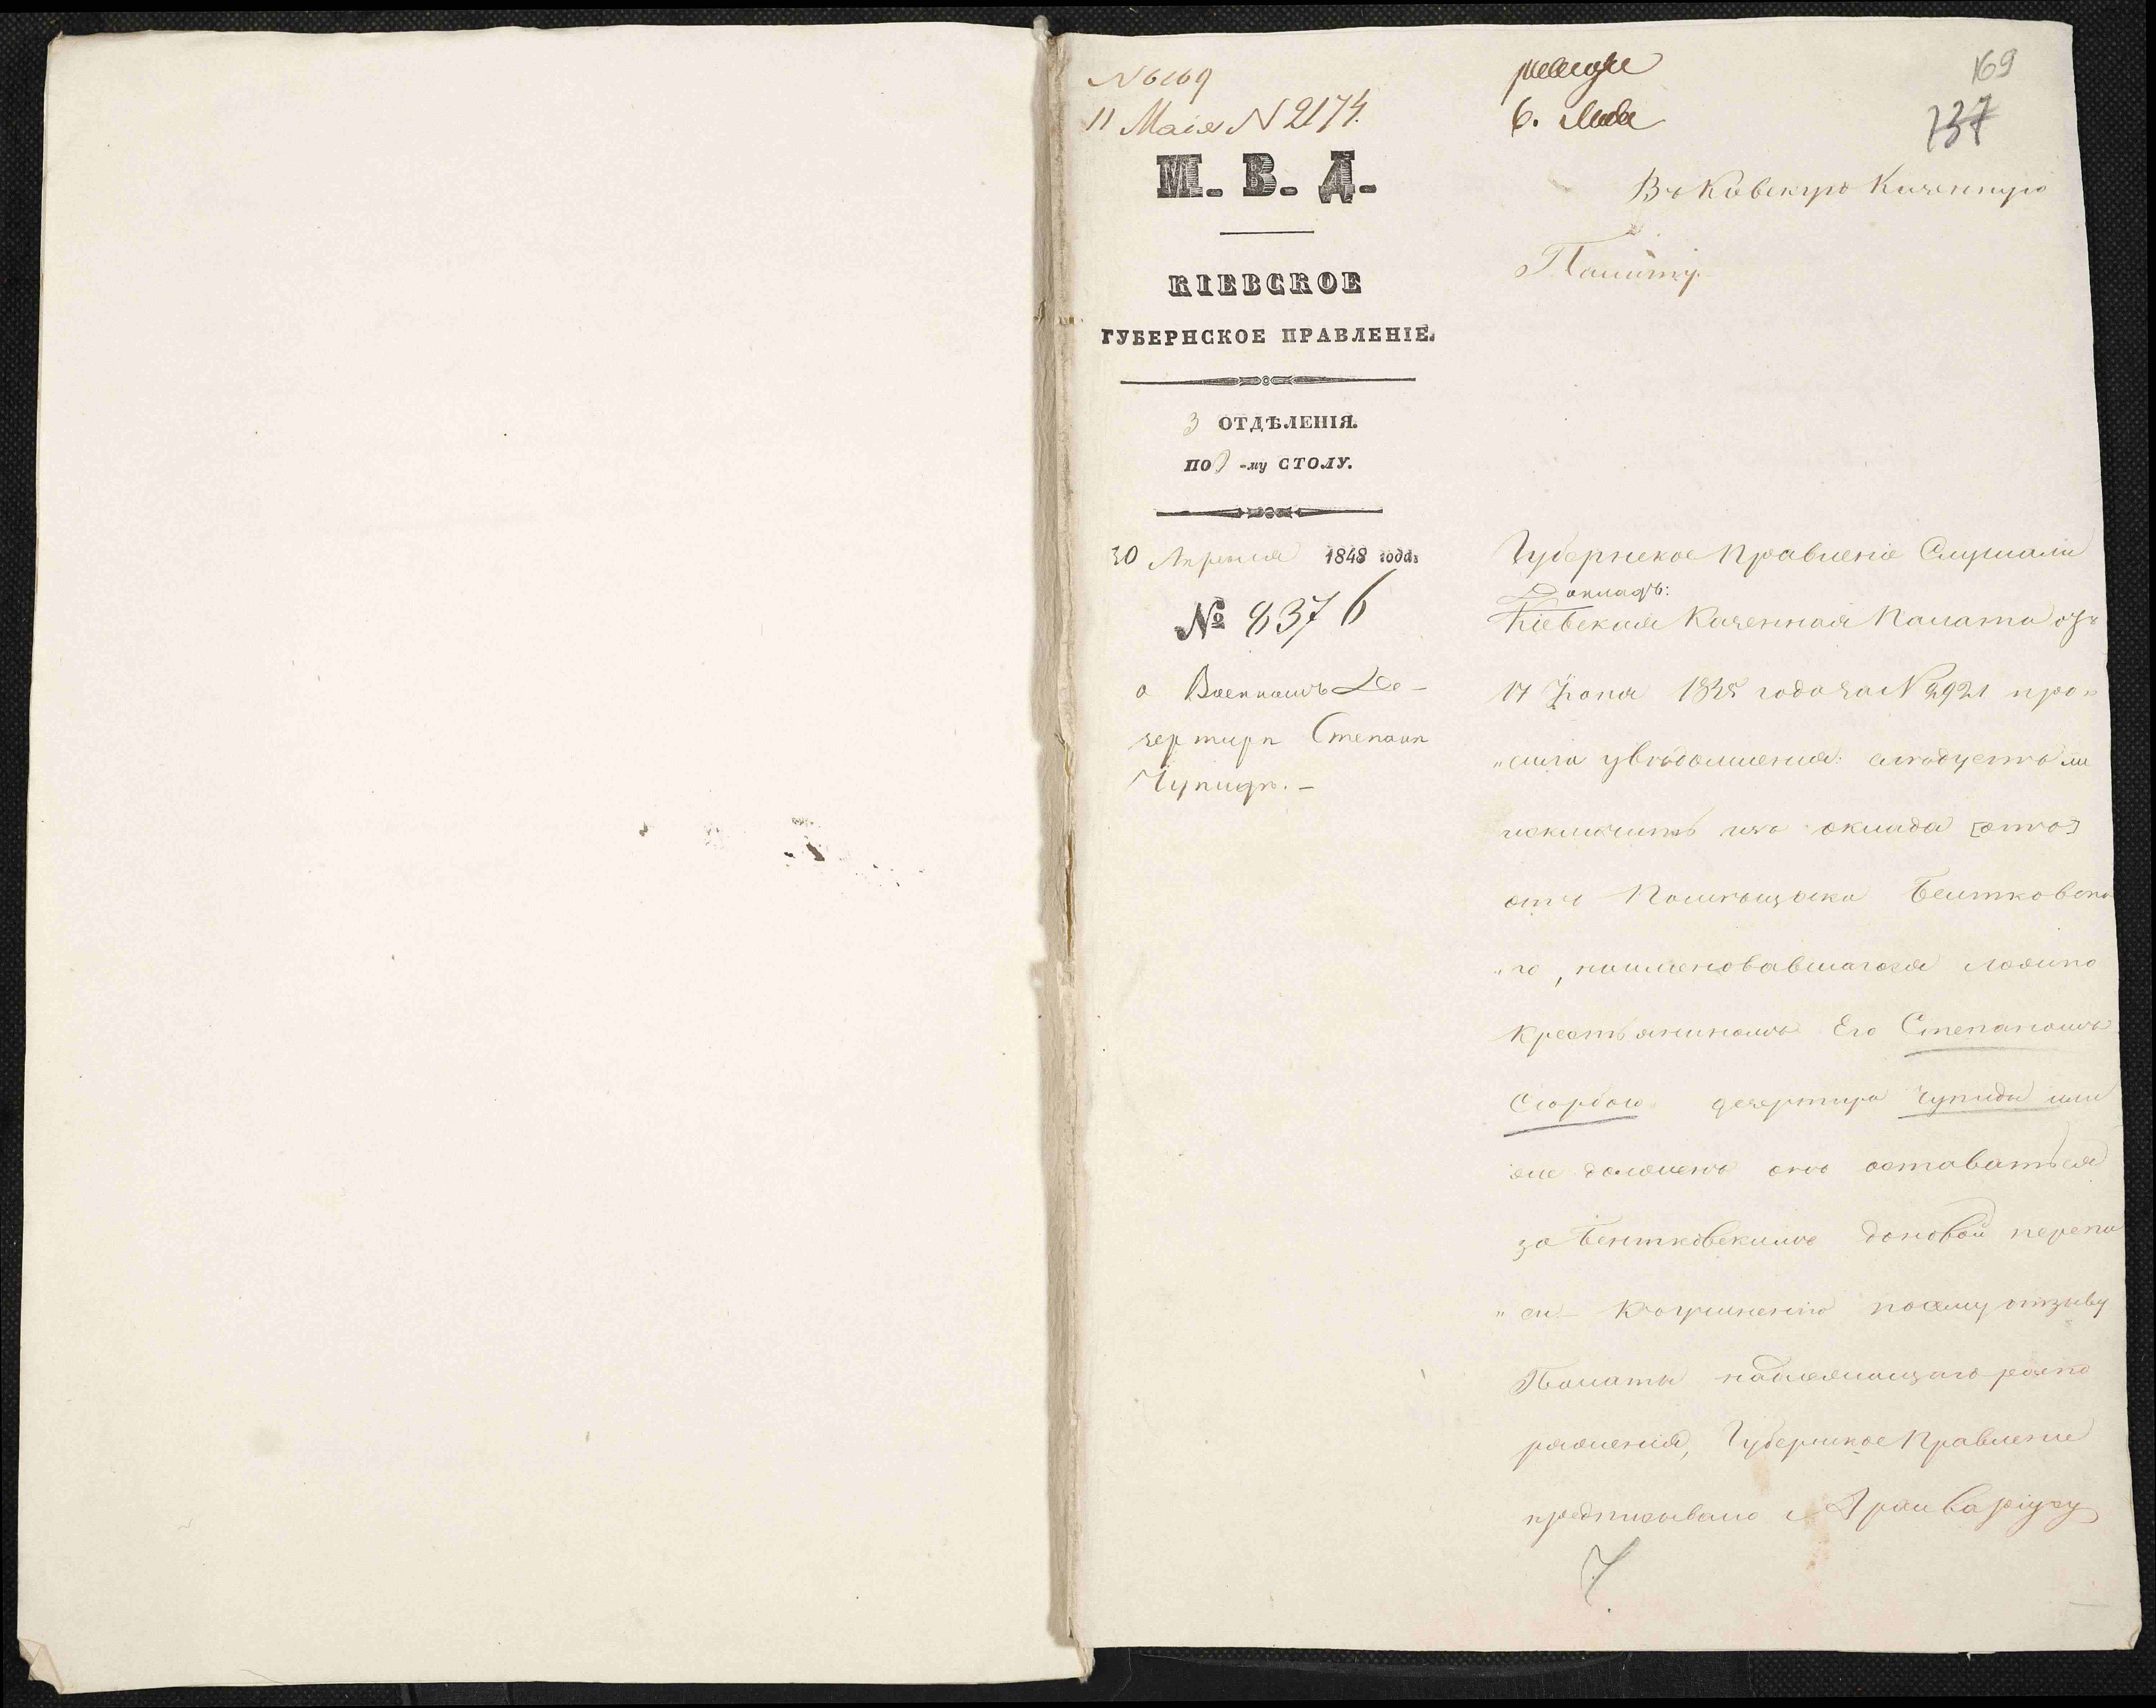 N 6169
11 Маія N 2174.
М. В. Д.
КІЕВСКОЕ
ГУБЕРНСКОЕ ПРАВЛЕНІЕ.
3 ОТДѢЛЕНІЯ.
ПО -му СТОЛУ.
30 Апрѣля 1848 года.
№ 8376
о Военномъ Де-
зертирѣ Степанѣ
Чупидѣ. -
169
737
6. Мая
Въ Кіевскую Казенную
Палату.
Губернское Правленіе Слушали
Докладъ:
Кіевская Казенная Палата отъ
17 Іюня 184 года за N 2921 про-
"сила увѣдомленія: слѣдуетъ ли
исключить изъ оклада [отъ]
отъ Помѣщика Бентковска
"го, поименовавшагося ложно
крестьяниномъ Его Степаномъ
Скорбою дезертира Чупиды или
же долженъ онъ оставаться
за Бентковскимъ до новой перепи
"си - Къ учиненію по сему отзыву
Палаты надлежащаго распо
ряженія, Губернское Правленіе
предписывало